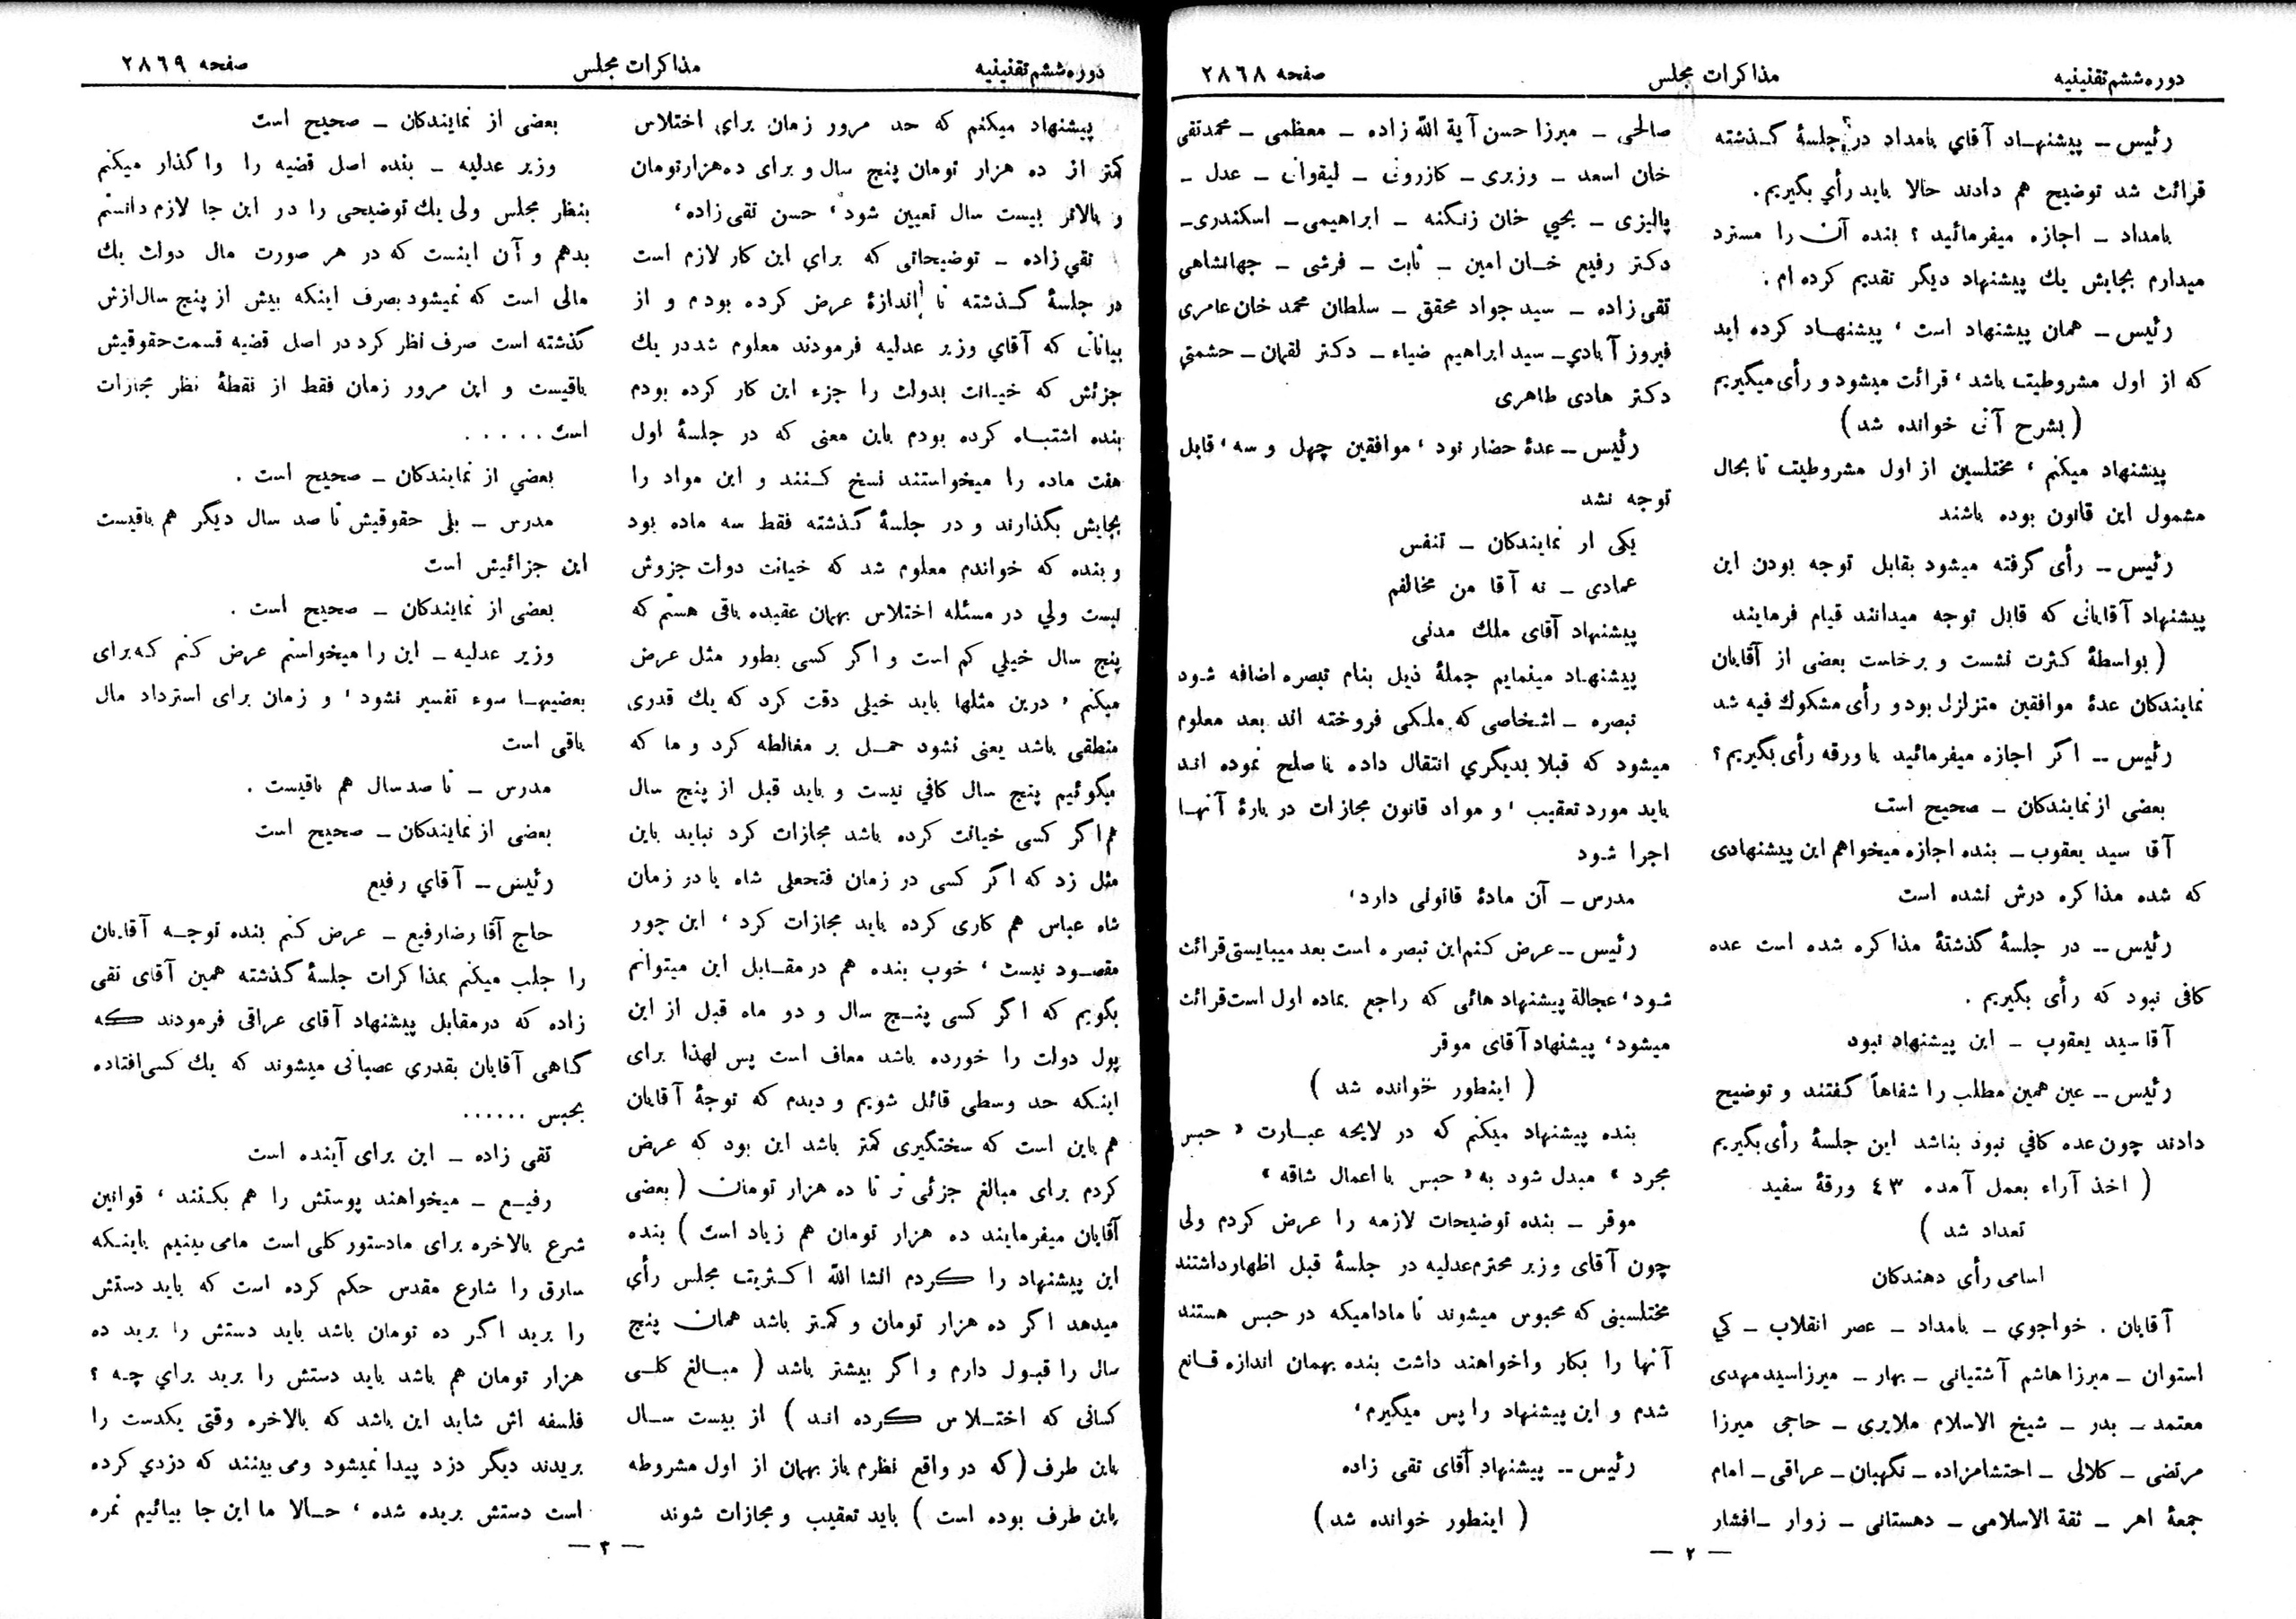 دوره ششم تقنینیه
مذاکرات مجلس
صفحه ۲۸۶۸
رئیس – پیشنهاد آقای یامداد در جلسهٔ گذشته
قرائت شد توضیح هم دادند حالا باید رأی بگیریم.
یامداد – اجازه میفرمائید ؟ بنده آن را مسترد
میدارم بجایش یك پیشنهاد دیگر تقدیم کرده ام .
رئیس – همان پیشنهاد است ، پیشنهاد کرده اید
که از اول مشروطیت باشد ، قرائت میشود و رأی میگیریم
( بشرح آتی خوانده شد )
پیشنهاد میکنم ، مختلسین از اول مشروطیت تا بحال
مشمول این قانون بوده باشند
رئیس – رأی گرفته میشود بقابل توجه بودن این
پیشنهاد آقایانی که قابل توجه میدانند قیام فرمایند
( بواسطهٔ کثرت نشست و برخاست بعضی از آقایان
نمایندکان عدهٔ موافقین متزلزل بود و رأی مشکوك فیه شد
رئیس – اگر اجازه میفرمائید با ورقه رأی بگیریم ؟
بعضی از نمایندکان – صحیح است
آقا سید یعقوب – بنده اجازه میخواهم این پیشنهادی
که شده مذاکره درش نشده است
رئیس – در جلسهٔ گذشتهٔ مذاکره شده است عده
کافی نبود که رأی بگیریم .
آقا سید یعقوب – این پیشنهاد نبود
رئیس – عین همین مطلب را شفاهاً گفتند و توضیح
دادند چون عده کافي نبود بناشد این جلسهٔ رأی بگیریم
( اخذ آراء بعمل آمده ٤٣ ورقهٔ سفید
تعداد شد )
اسامی رأی دهندکان
آقایان . خواجوي – یامداد – عصر انقلاب – کي
استوان – میرزا هاشم آشتیانی – بهار – میرزا سید مهدی
معتمد – بدر – شیخ الاسلام ملایری – حاجی میرزا
مرتضی – کلالی – احتشامزاده – نگهبان – عراقی – امام
جمعهٔ اهر – ثقة الاسلامی – دهستانی – زوار – افشار
صالحی – میرزا حسن آیة الله زاده – معظمی – محمدتقی
خان اسعد – وزیری – کازرونی – لیقوانی – عدل –
پالیزی – یحیي خان زنگنه – ابراهیمی – اسکندری –
دکتر رفیع خان امین – ثابت – فرشی – جهانشاهی
تقی زاده – سید جواد محقق – سلطان محمد خان عامری
فیروز آبادي – سید ابراهیم ضیاء – دکتر لقمان – حشمتي
دکتر هادی طاهری
رئیس – عدهٔ حضار نود ، موافقین چهل و سه ، قابل
توجه نشد
یکی ار نمایندکان – تنفس
عمادی – نه آقا من مخالفم
پیشنهاد آقای ملك مدنی
پیشنهاد مینمایم جملهٔ ذیل بنام تبصره اضافه شود
تبصره – اشخاصی که ملکی فروخته اند بعد معلوم
میشود که قبلا بدیگري انتقال داده یا صلح نموده اند
باید مورد تعقیب ، و مواد قانون مجازات در بارهٔ آنها
اجرا شود
مدرس – آن مادهٔ قانونی دارد ،
رئیس – عرض کنم این تبصره است بعد میبایستی قرائت
شود ، عجالة پیشنهاد هائی که راجع بماده اول است قرائت
میشود ، پیشنهاد آقای موقر
( اینطور خوانده شد )
بنده پیشنهاد میکنم که در لایحه عبارت « حبس
مجرد » مبدل شود به « حبس با اعمال شاقه »
موقر – بنده توضیحات لازمه را عرض کردم ولی
چون آقای وزیر محترم عدلیه در جلسهٔ قبل اظهار داشتند
مختلسینی که محبوس میشوند تا مادامیکه در حبس هستند
آنها را بکار واخواهند داشت بنده بهمان اندازه قانع
شدم و این پیشنهاد را پس میگیرم ،
رئیس – پیشنهاد آقای تقی زاده
( اینطور خوانده شد )
— ٢ —
دوره ششم تقنینیه
مذاکرات مجلس
صفحه ۲۸۶۹
پیشنهاد میکنم که حد مرور زمان برای اختلاس
کمتر از ده هزار تومان پنج سال و برای ده هزار تومان
و بالاتر بیست سال تعیین شود ، حسن تقی زاده ،
تقي زاده – توضیحاتی که براي این کار لازم است
در جلسهٔ گذشته تا اندازهٔ عرض کرده بودم و از
بیانات که آقاي وزیر عدلیه فرمودند معلوم شد در یك
جزئش که خیانت بدولت را جزء این کار کرده بودم
بنده اشتباه کرده بودم باین معنی که در جلسهٔ اول
هفت ماده را میخواستند نسخ کنند و این مواد را
بجایش بگذارند و در جلسهٔ گذشته فقط سه ماده بود
و بنده که خواندم معلوم شد که خیانت دولت جزوش
نیست ولي در مسئله اختلاس بهمان عقیده باقی هستم که
پنج سال خیلي کم است و اگر کسی بطور مثل عرض
میکنم ، درین مثلها باید خیلی دقت کرد که یك قدری
منطقی باشد یعنی نشود حمل بر مغالطه کرد و ما که
میگوئیم پنج سال کافي نیست و باید قبل از پنج سال
هم اگر کسی خیانت کرده باشد مجازات کرد نباید باین
مثل زد که اگر کسی در زمان فتحعلی شاه یا در زمان
شاه عباس هم کاری کرده باید مجازات کرد ، این جور
مقصود نیست ، خوب بنده هم در مقابل این میتوانم
بگویم که اگر کسی پنج سال و دو ماه قبل از این
پول دولت را خورده باشد معاف است پس لهذا برای
اینکه حد وسطی قائل شویم و دیدم که توجهٔ آقایان
هم باین است که سختگیری کمتر باشد این بود که عرض
کردم برای مبالغ جزئی تر تا ده هزار تومان ( بعضی
آقایان میفرمایند ده هزار تومان هم زیاد است ) بنده
این پیشنهاد را کردم انشا الله اکثریت مجلس رأی
میدهد اگر ده هزار تومان و کمتر باشد همان پنج
سال را قبول دارم و اگر بیشتر باشد ( مبالغ کلی
کسانی که اختلاس کرده اند ) از بیست سال
باین طرف ( که در واقع نظرم باز بهمان از اول مشروطه
باین طرف بوده است ) باید تعقیب و مجازات شوند
بعضی از نمایندکان – صحیح است
وزیر عدلیه – بنده اصل قضیه را واگذار میکنم
بنظر مجلس ولی یك توضیحی را در این جا لازم دانستم
بدهم و آن اینست که در هر صورت مال دولت یك
مالی است که نمیشود بصرف اینکه بیش از پنج سال ازش
گذشته است صرف نظر کرد در اصل قضیه قسمت حقوقیش
باقیست و این مرور زمان فقط از نقطهٔ نظر مجازات
است . . . . .
بعضي از نمایندکان – صحیح است .
مدرس – بلی حقوقیش تا صد سال دیگر هم باقیست
این جزائیش است
بعضی از نمایندکان – صحیح است .
وزیر عدلیه – این را میخواستم عرض کنم که برای
بعضیها سوء تفسیر نشود ، و زمان برای استرداد مال
باقی است
مدرس – تا صد سال هم باقیست .
بعضی از نمایندکان – صحیح است
رئیس – آقاي رفیع
حاج آقا رضا رفیع – عرض کنم بنده توجه آقایان
را جلب میکنم بمذاکرات جلسهٔ گذشته همین آقای تقی
زاده که در مقابل پیشنهاد آقای عراقی فرمودند که
گاهی آقایان بقدري عصبانی میشوند که یك کسی افتاده
بحبس ......
تقی زاده – این برای آینده است
رفیع – میخواهند پوستش را هم بکنند ، قوانین
شرع بالاخره برای ما دستور کلی است ما می بینیم باینکه
سارق را شارع مقدس حکم کرده است که باید دستش
را برید اگر ده تومان باشد باید دستش را برید ده
هزار تومان هم باشد باید دستش را برید براي چه ؟
فلسفه اش شاید این باشد که بالاخره وقتی یکدست را
بریدند دیگر دزد پیدا نمیشود و می بینند که دزدي کرده
است دستش بریده شده ، حالا ما این جا بیائیم نمره
— ٣ —